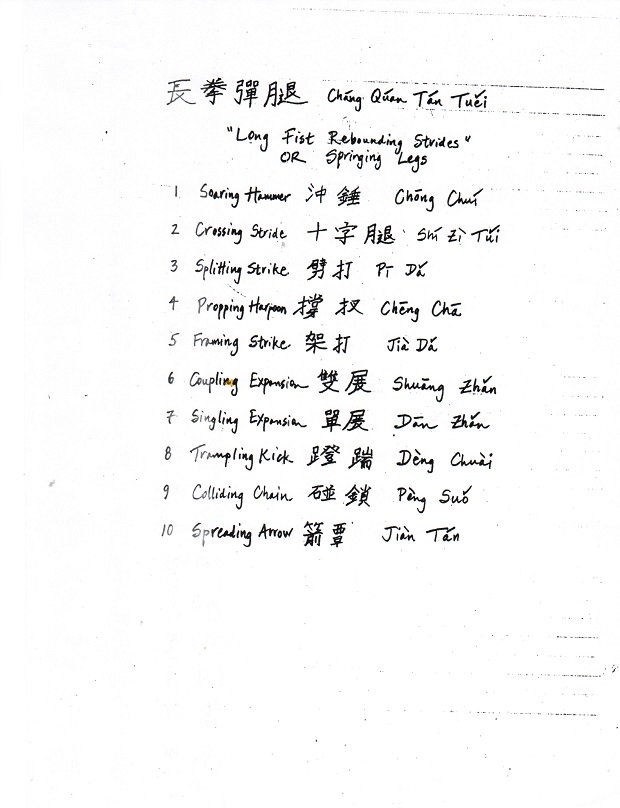 長拳彈腿 Cháng Quán Tán Tuěi
"Long Fist Rebounding Strides"
OR Springing Legs
1 Soaring Hammer 沖錘 Chōng Chuí
2 Crossing Stride 十字腿 Shí Zì Tuǐ
3 Splitting Strike 劈打 Pī Dǎ
4 Propping Harpoon 撐扠 Chēng Chā
5 Framing Strike 架打 Jià Dǎ
6 Coupling Expansion 雙展 Shuāng Zhǎn
7 Singling Expansion 單展 Dān Zhǎn
8 Trampling Kick 蹬踹 Dèng Chuài
9 Colliding Chain 碰鎖 Pèng Suǒ
10 Spreading Arrow 箭覃 Jiàn Tán